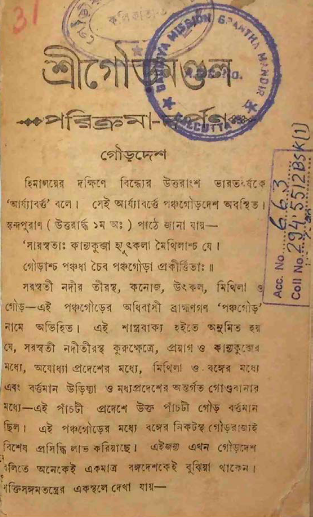 31
শ্রীগৌড়মণ্ডল
পরিক্রমা-দর্পণ
গৌড়দেশ
হিমালয়ের দক্ষিণে বিন্ধ্যের উত্তরাংশ ভারতবর্ষকে
'আর্য্যাবর্ত্ত' বলে। সেই আর্য্যাবর্ত্তে পঞ্চগৌড়দেশ অবস্থিত।
স্কন্দপুরাণ (উত্তরার্দ্ধ ১ম অঃ) পাঠে জানা যায়—
'সারস্বতাঃ কান্যকুব্জা হ্যুৎকলা মৈথিলাশ্চ যে।
গৌড়াশ্চ পঞ্চধা চৈব পঞ্চগৌড়া প্রকীর্ত্তিতাঃ॥
সরস্বতী নদীর তীরস্থ, কনোজ, উৎকল, মিথিলা ও
গৌড়—এই পঞ্চগৌড়ের অধিবাসী ব্রাহ্মণগণ 'পঞ্চগৌড়'
নামে অভিহিত। এই শাস্ত্রবাক্য হইতে অনুমিত হয়
যে, সরস্বতী নদীতীরস্থ কুরুক্ষেত্রে, প্রয়াগ ও কান্যকুব্জের
মধ্যে, অযোধ্যা প্রদেশের মধ্যে, মিথিলা ও বঙ্গের মধ্যে
এবং বর্ত্তমান উড়িষ্যা ও মধ্যপ্রদেশের অন্তর্গত গোণ্ডবানার
মধ্যে—এই পাঁচটী প্রদেশে উক্ত পাঁচটী গৌড় বর্ত্তমান
ছিল। এই পঞ্চগৌড়ের মধ্যে বঙ্গের নিকটস্থ গৌড়রাজ্যই
বিশেষ প্রসিদ্ধি লাভ করিয়াছে। এইজন্য এখন গৌড়দেশ
বলিতে অনেকেই একমাত্র বঙ্গদেশকেই বুঝিয়া থাকেন।
শক্তিসঙ্গমতন্ত্রের একস্থলে দেখা যায়—
GAUDIYA MISSION GRANTHA MANDIR
CALCUTTA
Acc. No. 663
Coll No. 294.5512BSK(1)